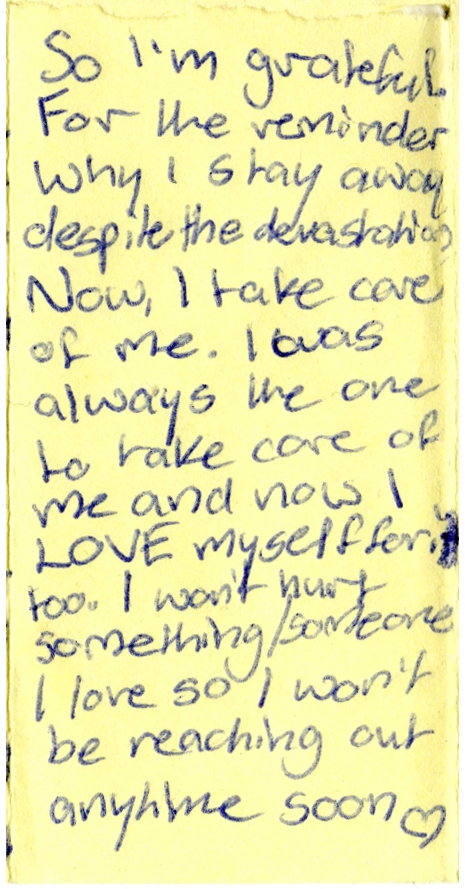 So I'm grateful.
For the reminder
why I stay away
despite the devastation
Now, I take care
of me. I was
always the one
to take care of
me and now I
LOVE myself for it
too. I won't hurt
something/someone
I love so I won't
be reaching out
anytime soon ♡